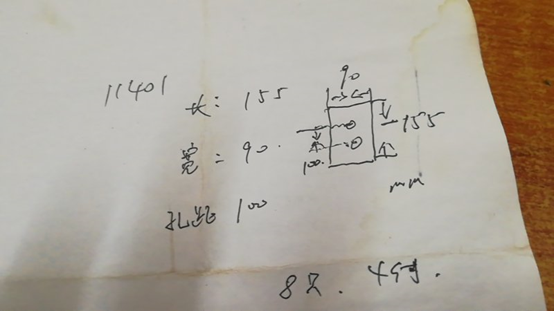 11401
长: 155
宽: 90.
孔距 100
90
155
100
mm
8只.